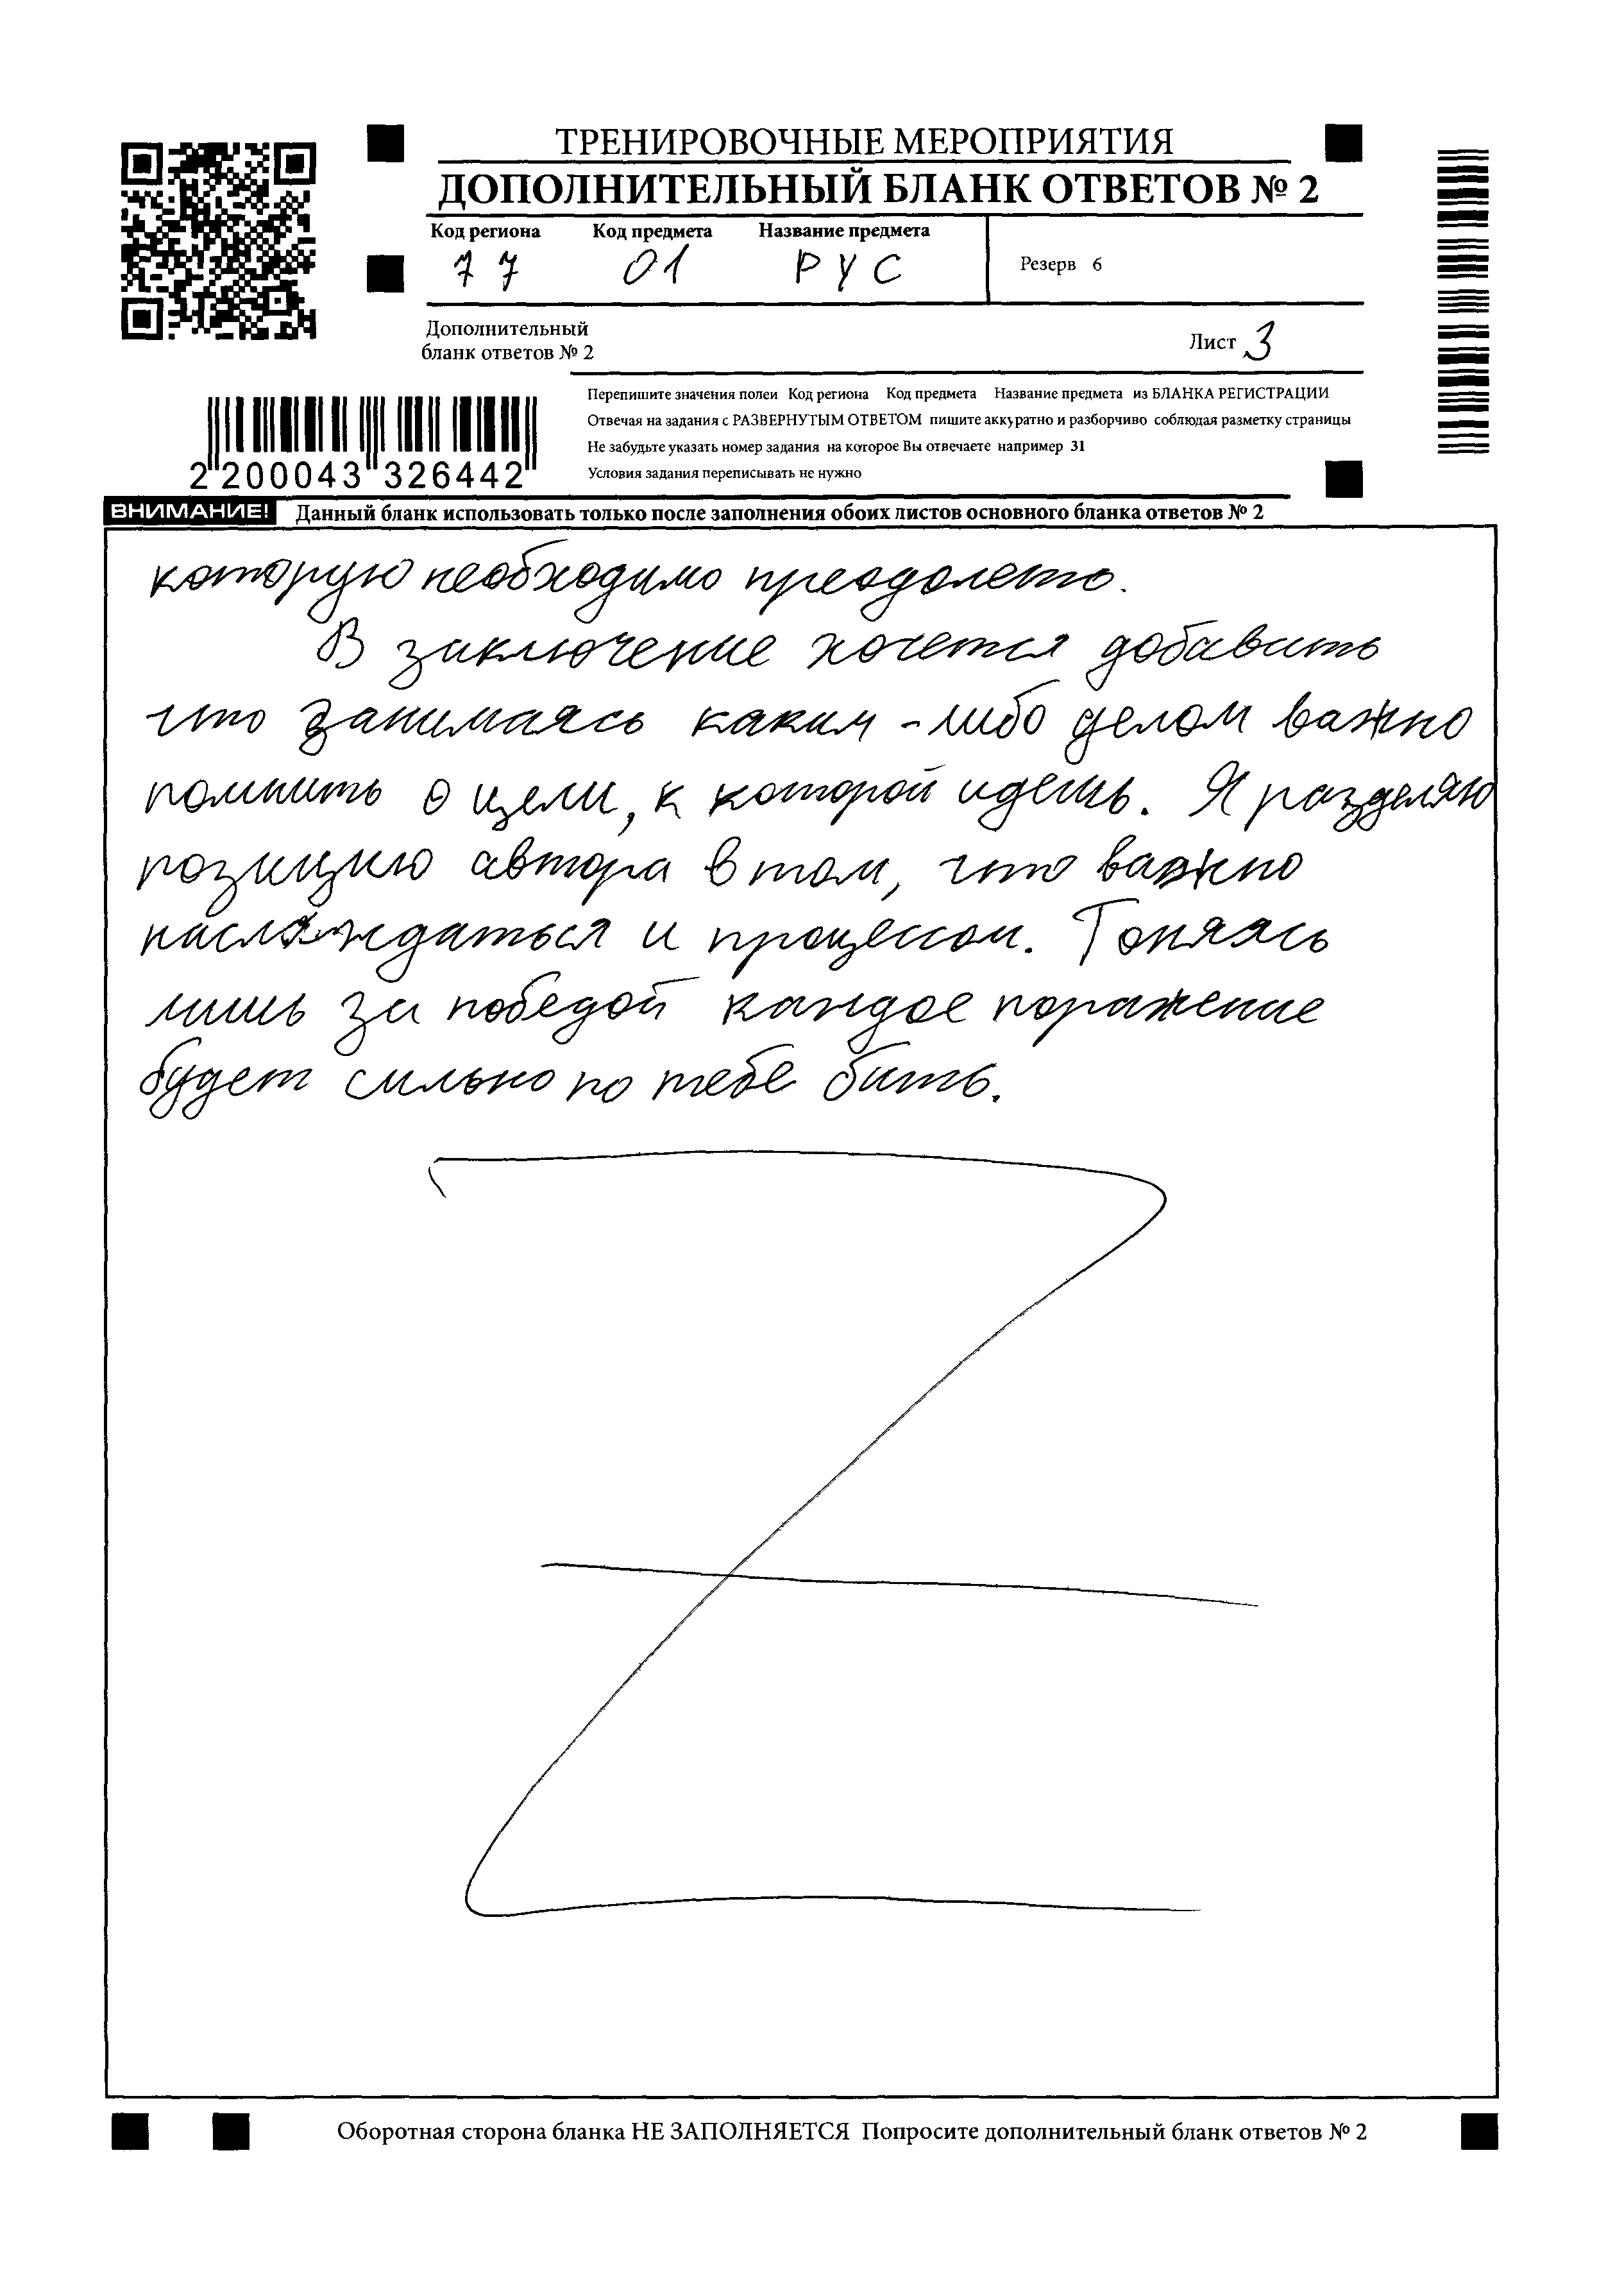 ТРЕНИРОВОЧНЫЕ МЕРОПРИЯТИЯ
ДОПОЛНИТЕЛЬНЫЙ БЛАНК ОТВЕТОВ № 2
Код региона Код предмета Название предмета
77 01 РУС Резерв 6
Дополнительный
бланк ответов № 2
Лист 3
Перепишите значения полеи Код региона Код предмета Название предмета из БЛАНКА РЕГИСТРАЦИИ
Отвечая на задания с РАЗВЕРНУТЫМ ОТВЕТОМ пишите аккуратно и разборчиво соблюдая разметку страницы
Не забудьте указать номер задания на которое Вы отвечаете например 31
Условия задания переписывать не нужно
2 200043 326442
ВНИМАНИЕ! Данный бланк использовать только после заполнения обоих листов основного бланка ответов № 2
которую необходимо преодолеть.
В заключение хочется добавить
что занимаясь каким-либо делом важно
помнить о цели, к которой идешь. Я разделяю
позицию автора в том, что важно
наслаждаться и процессом. Гоняясь
лишь за победой каждое поражение
будет сильно по тебе бить.
Оборотная сторона бланка НЕ ЗАПОЛНЯЕТСЯ Попросите дополнительный бланк ответов № 2